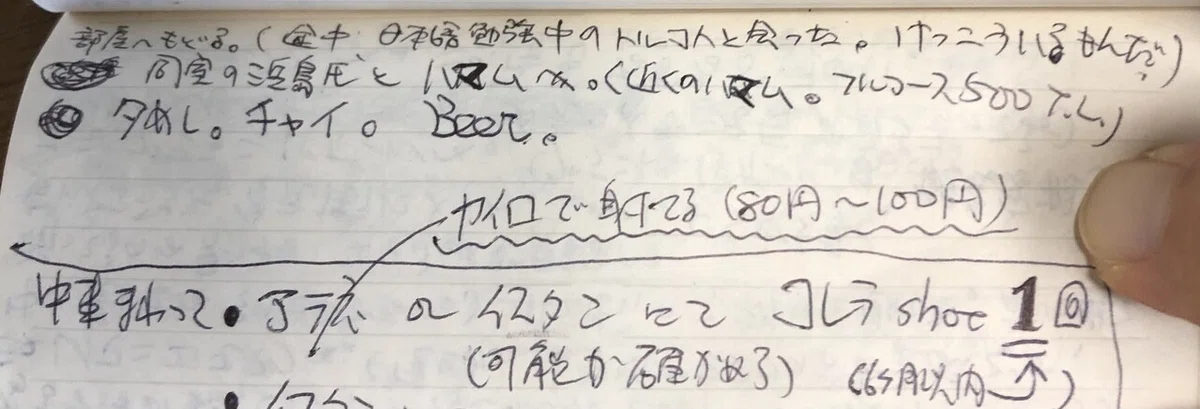 部屋へもどる。(途中、日本語勉強中のトルコ人と会った。けっこういるもんだ)
同室の浜島氏とハマムへ。(近くのハマム。フルコース500T.L.)
夕めし。チャイ。Beer。
カイロで射てる(80円〜100円)
アテネ or イスタンにて コレラ shot 1回
(可能か確かめる) (6ヶ月以内↑)